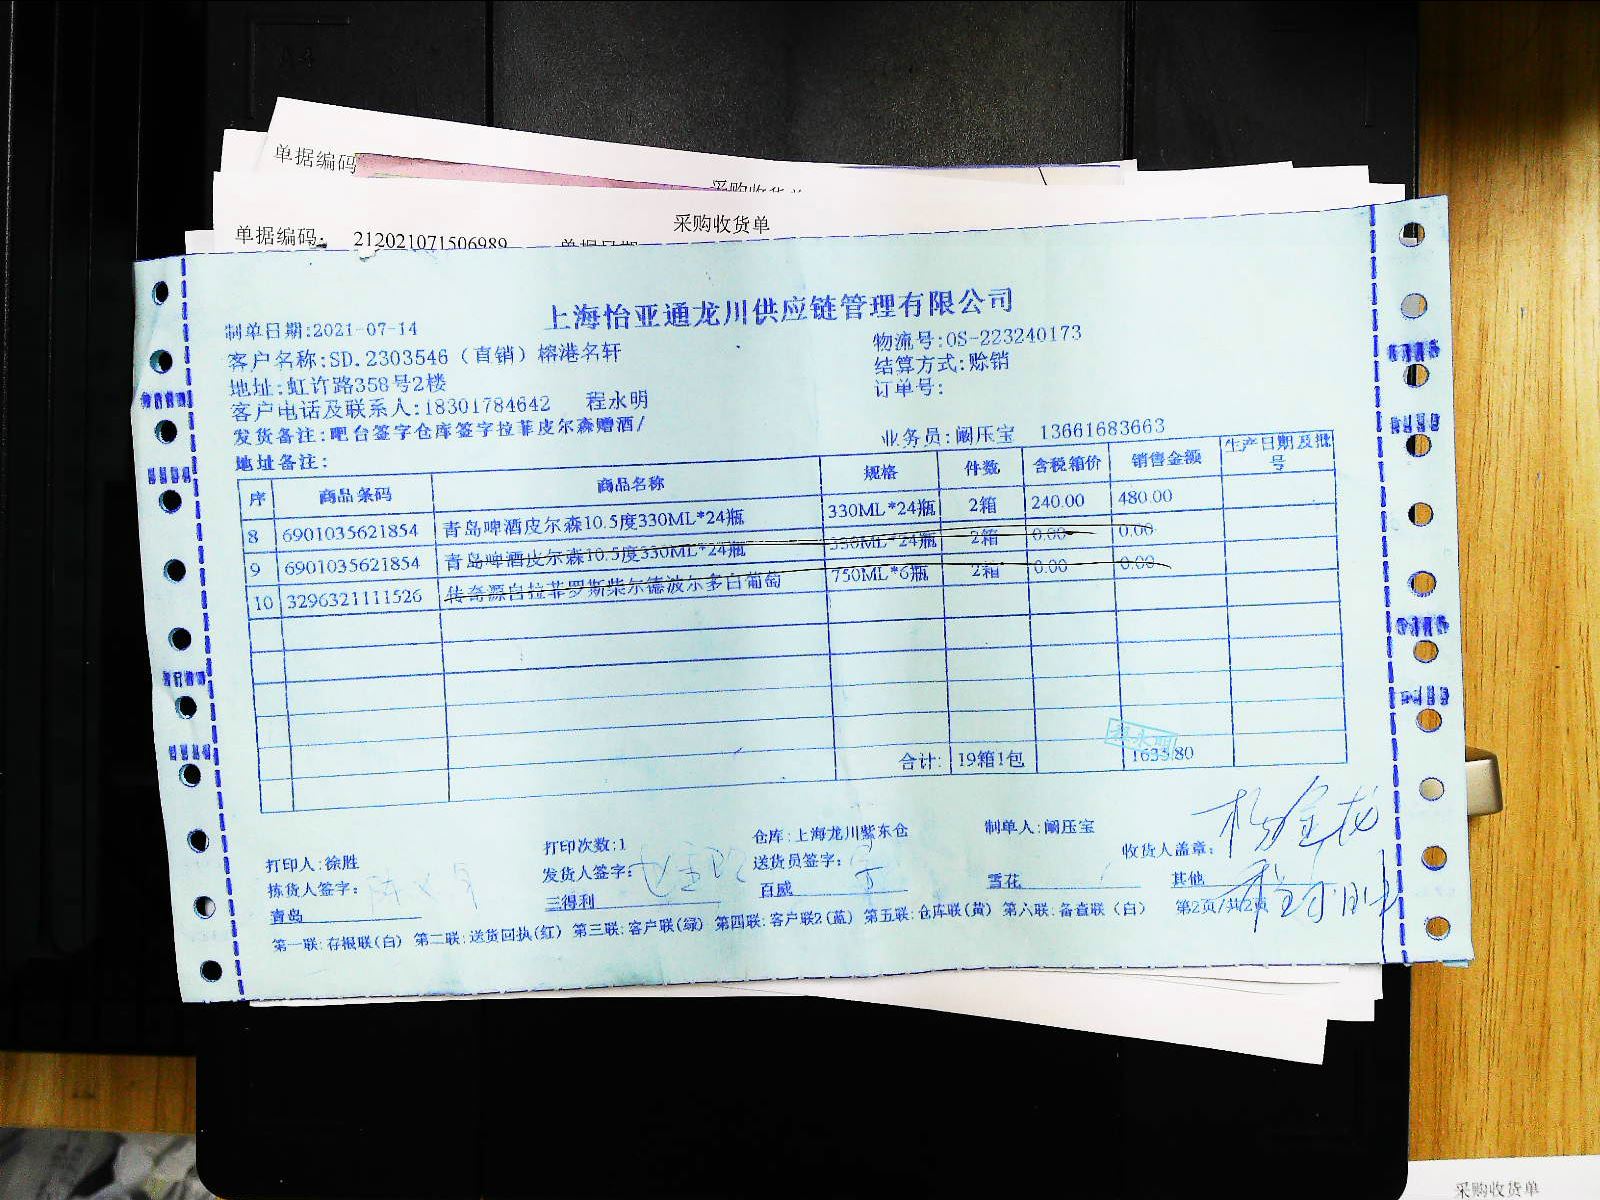 单据编码
采购收货单
采购收货单
单据编码: 212021071506989 单据日期
上海怡亚通龙川供应链管理有限公司
制单日期:2021-07-14
物流号:OS-223240173
客户名称:SD.2303546（直销）榕港名轩
结算方式:赊销
地址:虹许路358号2楼
订单号:
客户电话及联系人:18301784642 程永明
发货备注:吧台签字仓库签字拉菲皮尔森赠酒/
业务员:阚压宝 13661683663
地址备注:
序 商品条码 商品名称 规格 件数 含税箱价 销售金额 生产日期及批号
8 6901035621854 青岛啤酒皮尔森10.5度330ML*24瓶 330ML*24瓶 2箱 240.00 480.00
9 6901035621854 青岛啤酒皮尔森10.5度330ML*24瓶 330ML*24瓶 2箱 0.00 0.00
10 3296321111526 传奇源自拉菲罗斯柴尔德波尔多白葡萄 750ML*6瓶 2箱 0.00 0.00
合计: 19箱1包 1633.80
打印人:徐胜 打印次数:1 仓库:上海龙川紫东仓 制单人:阚压宝
拣货人签字: 发货人签字: 送货员签字: 收货人盖章: 杨金龙
青岛 三得利 百威 雪花 其他
第一联:存根联(白) 第二联:送货回执(红) 第三联:客户联(绿) 第四联:客户联2(蓝) 第五联:仓库联(黄) 第六联:备查联(白) 第2页/共2页
采购收货单